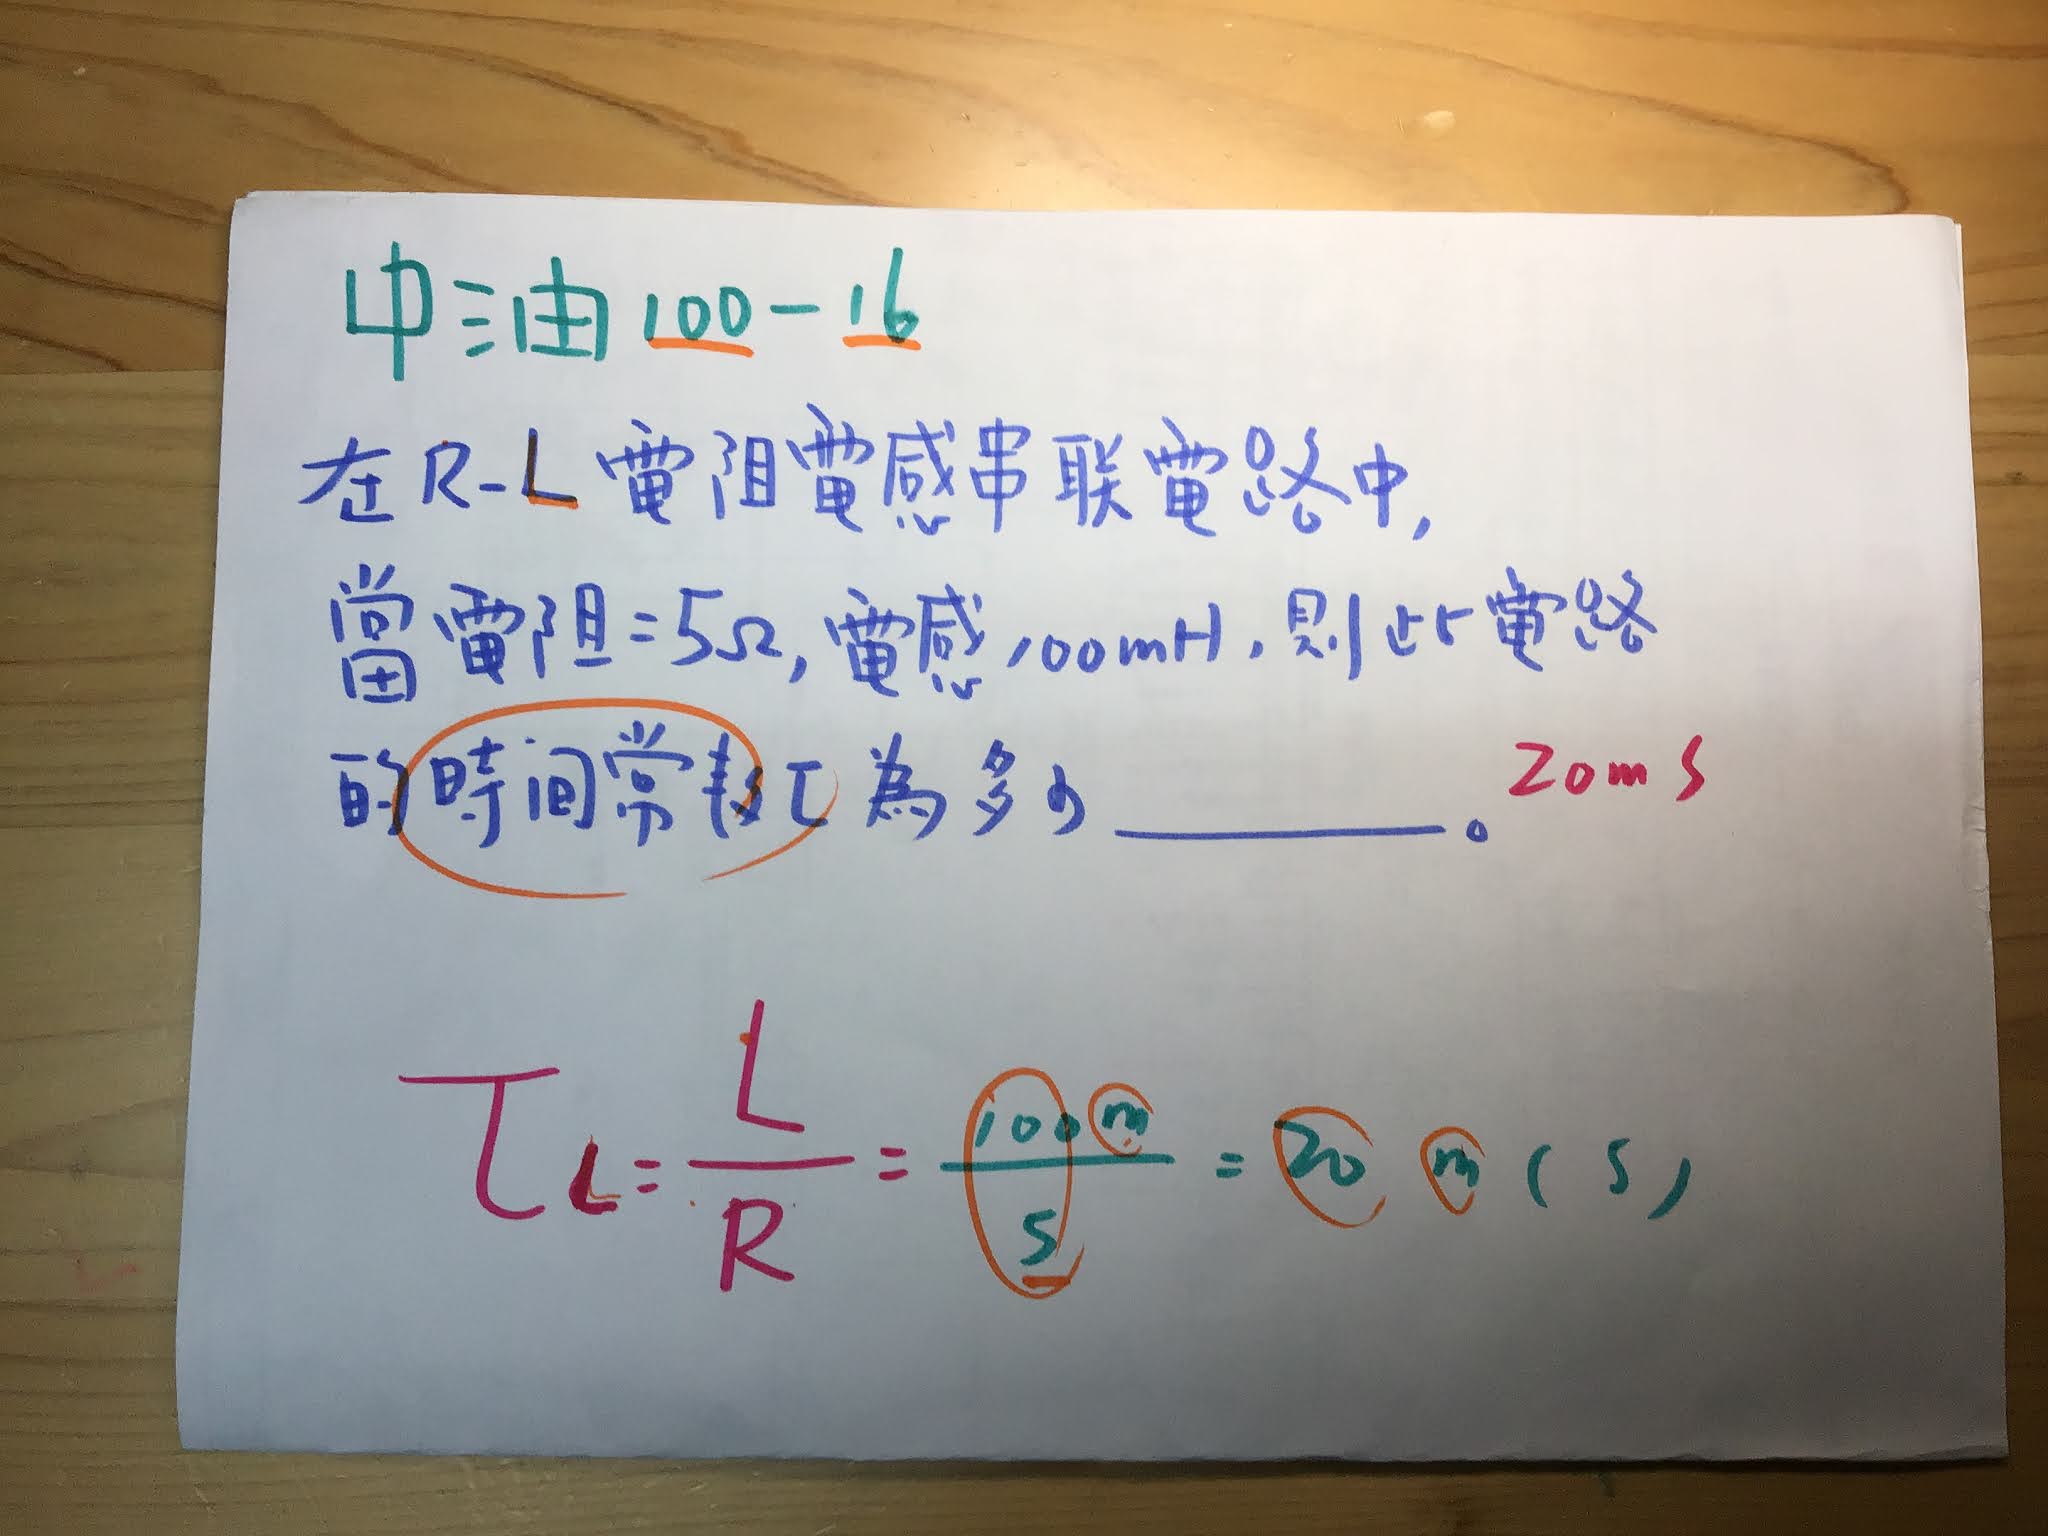 中油100-16
在R-L電阻電感串联電路中,
當電阻=5Ω,電感100mH,則此電路
的時间常数τ為多少______。20mS
τL=L/R=100m/5=20m(S)